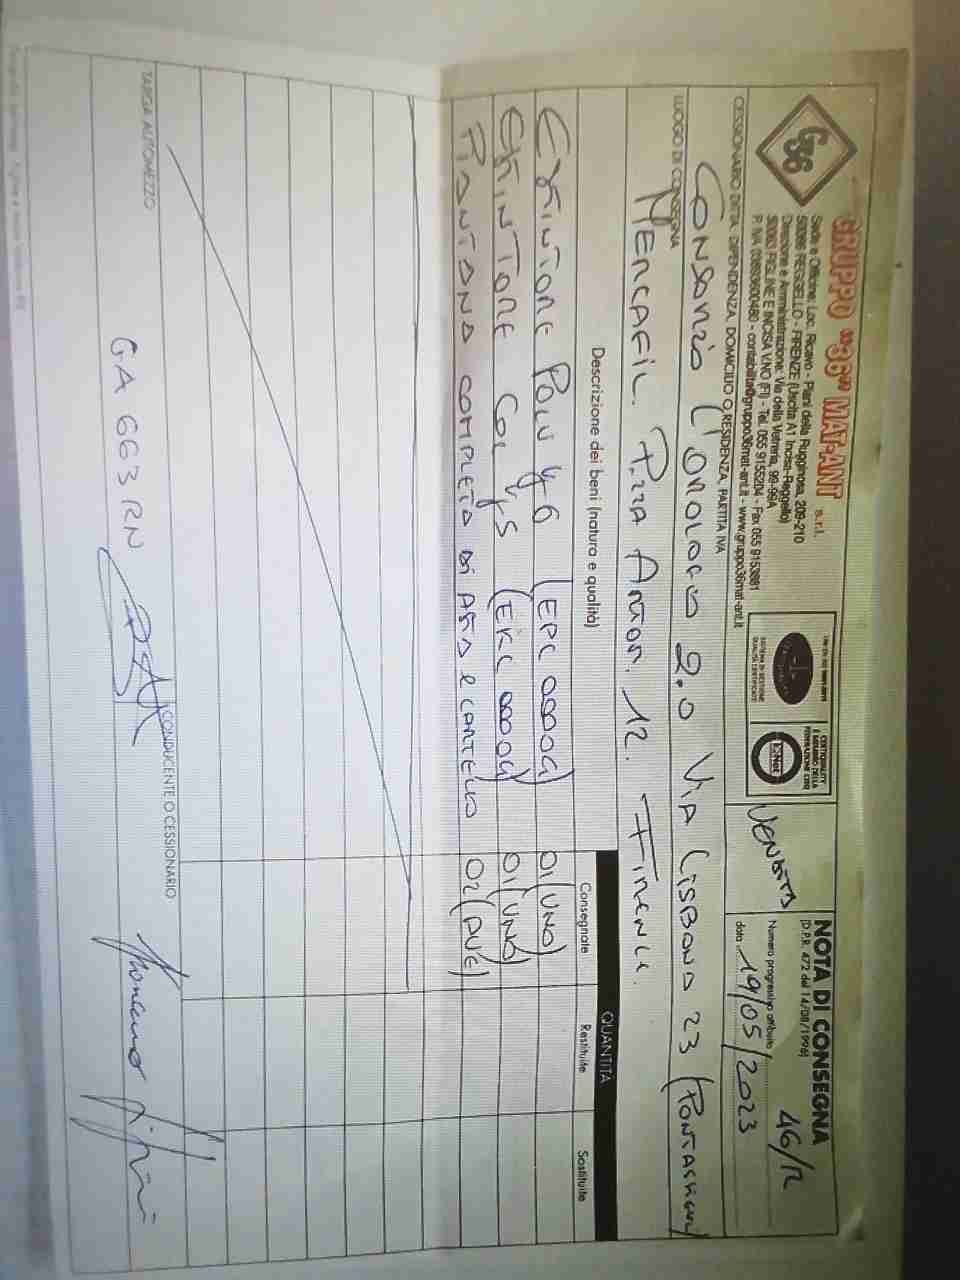 G36
GRUPPO "36" MAT-ANT s.r.l.
Sede e Officine: Loc. Ricavo - Piani della Rugginosa, 209-210
50066 REGGELLO - FIRENZE (Uscita A1 Incisa-Reggello)
Direzione e Amministrazione: Via della Vetreria, 99-99A
50063 FIGLINE E INCISA V.NO (FI) - Tel. 055 9155204 - Fax 055 9153881
P. IVA 03693600480 - contabilita@gruppo36mat-ant.it - www.gruppo36mat-ant.it
SISTEMA DI GESTIONE
QUALITÀ CERTIFICATO
CERTIQUALITY
È MEMBRO DELLA
FEDERAZIONE CISQ
IQNet
VENDITA
NOTA DI CONSEGNA
(D.P.R. 472 del 14/08/1996)
Numero progressivo attribuito 46/R
data 19/05/2023
CESSIONARIO DITTA, DIPENDENZA, DOMICILIO O RESIDENZA, PARTITA IVA
CONSORZIO L'OROLOGIO 2.0 VIA LISBONA 23 (PONTASSIEVE)
LUOGO DI CONSEGNA
MERCAFIR. P.ZZA ARTOM. 12. FIRENZE.
Descrizione dei beni (natura e qualità)
QUANTITÀ
Consegnate Restituite Sostituite
ESTINTORE POLV 01 (UNO)
ESTINTORE CO2 01 (UNO)
PIANTANA COMPLETA DI ASTA E CARTELLO 02 (DUE)
TARGA AUTOMEZZO
CONDUCENTE O CESSIONARIO
GA 663 RN